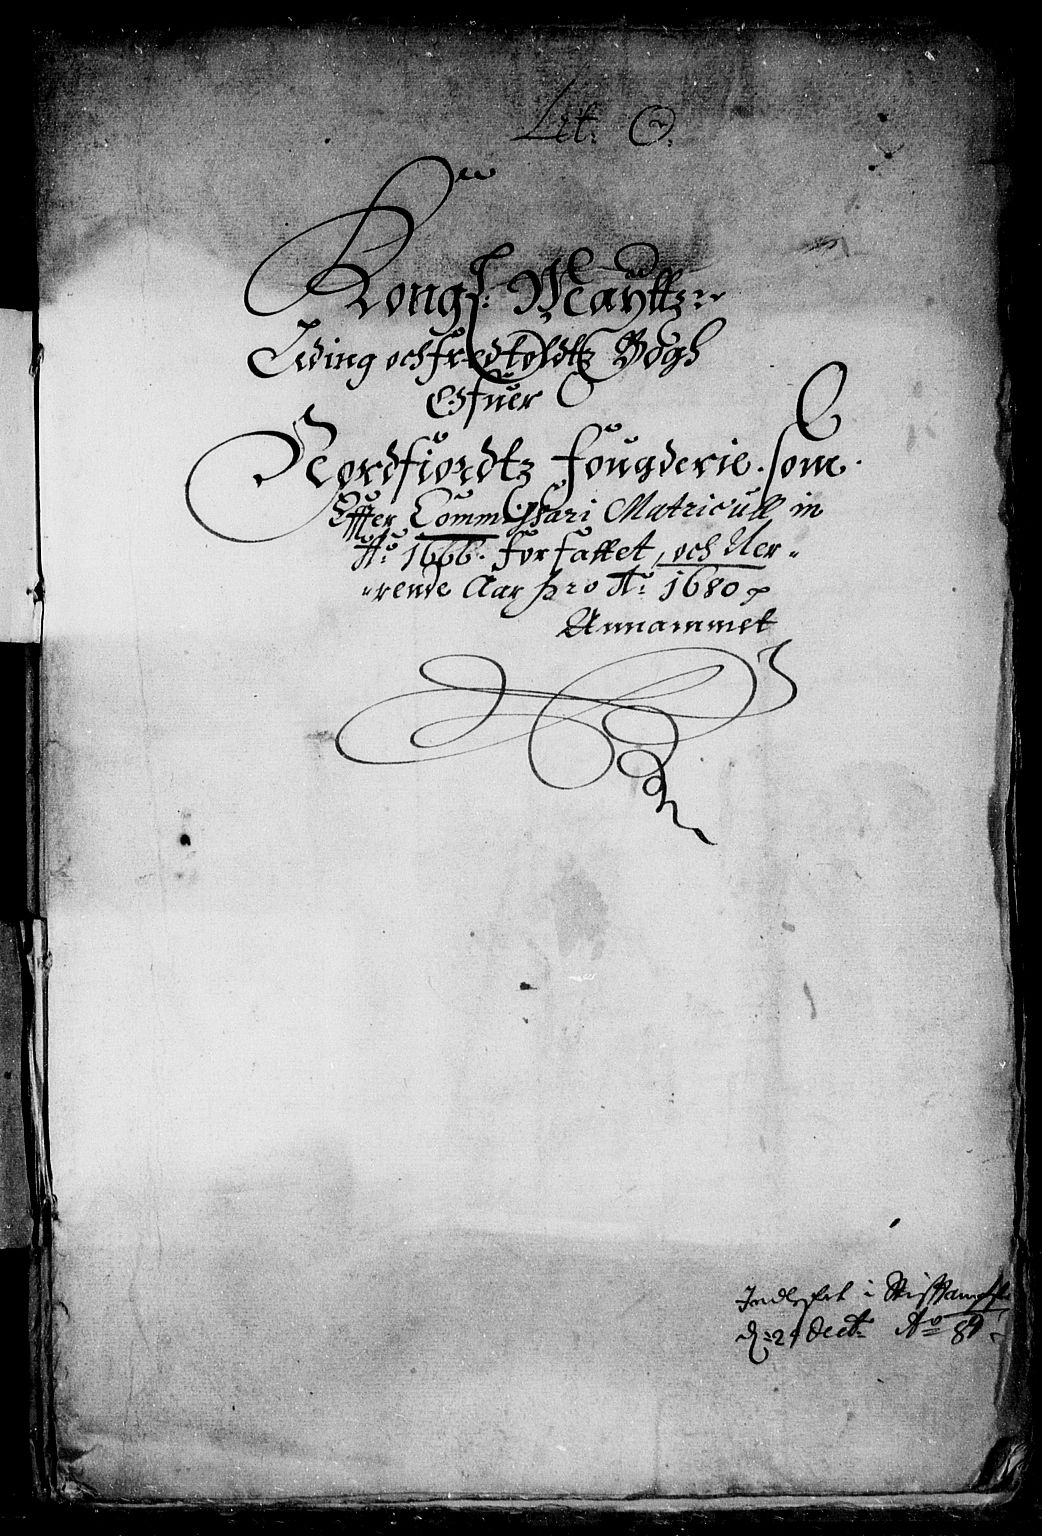 Lit: O.
Kongl: Mayttz:
Iding och fredtoldtz Bogh
Ofuer
Nordfiordtz fougderie. som
Effter Commissari Matricull in
Ao: 1666. forfattet, och Uer-
-rende Aar pro Ao: 1680
Annammet
Indlefret i
d: 21 Ao 81